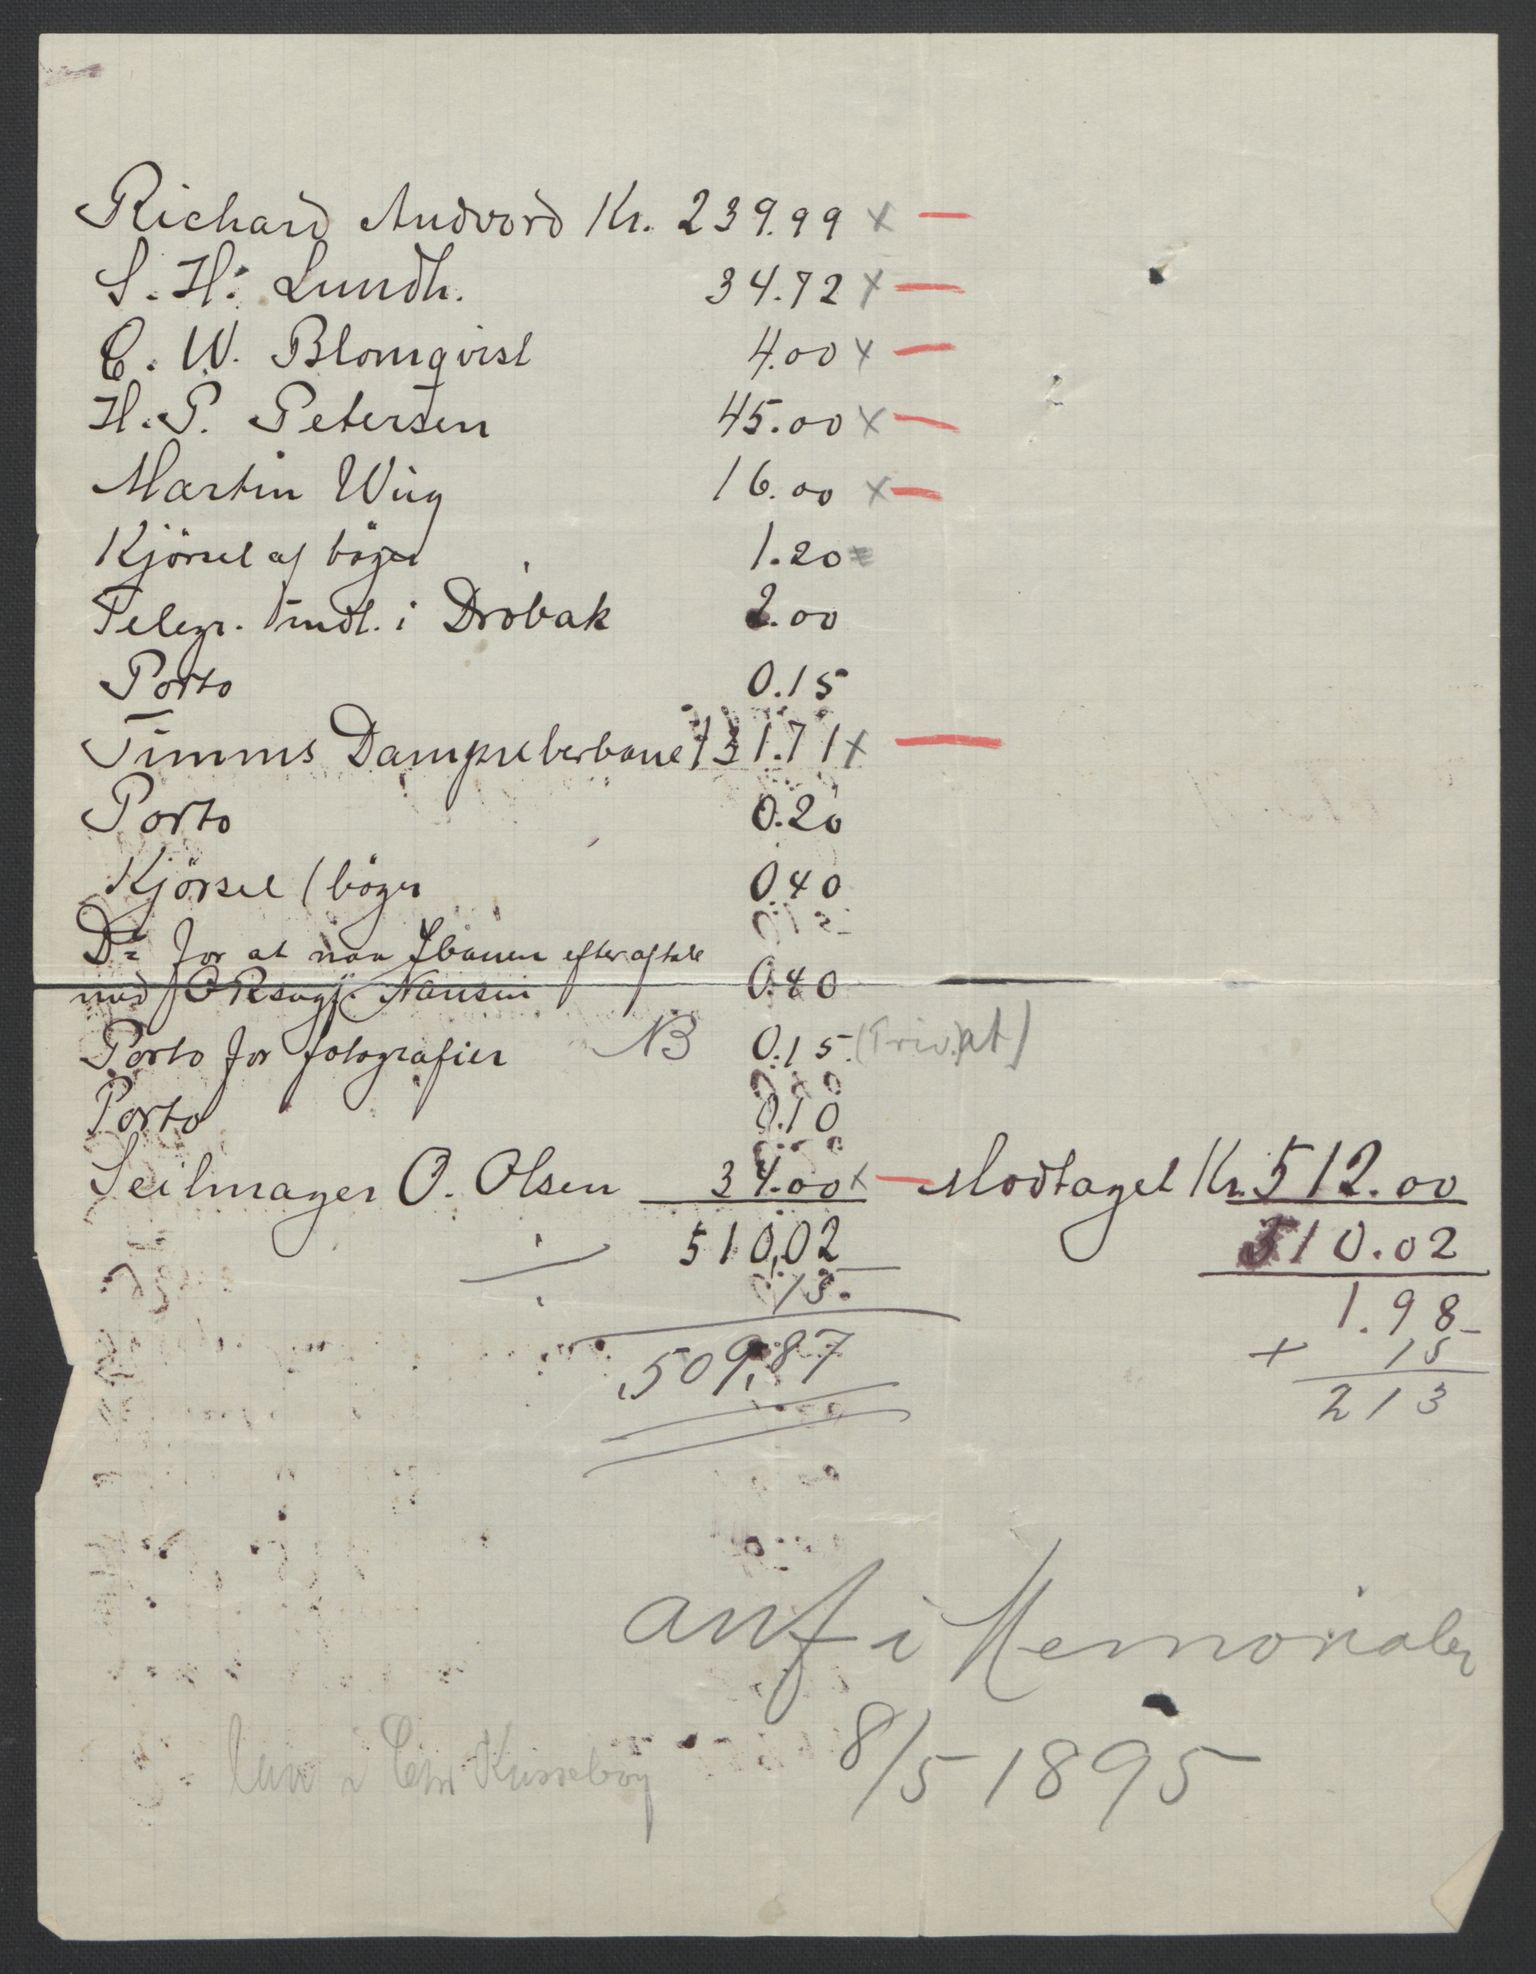 Richard Andvord Kr. 239.99 x —
S. H. Lundh. 34.72 x —
C. W. Blomqvist 4.00 x —
H. P. Petersen 45.00 x —
Martin Wiig 16.00 x —
Kjörsel af böger 1.20
Telegr. Indl. i Dröbak 2.00
Porto 0.15
Timms Dampreberbane 131.71 x —
Porto 0.20
Kjörsel / böger 0.40
Do for at naa Jbanen efter aftale
med Nansen 0.40
Porto for fotografier NB 0.15 (Privat)
Porto 0.10
Seilmager O. Olsen 34.00 x — Modtaget Kr. 512.00
510,02 510.02
15. 1.98
+ 15
509,87 213
anf i Memorialen
8/5 1895